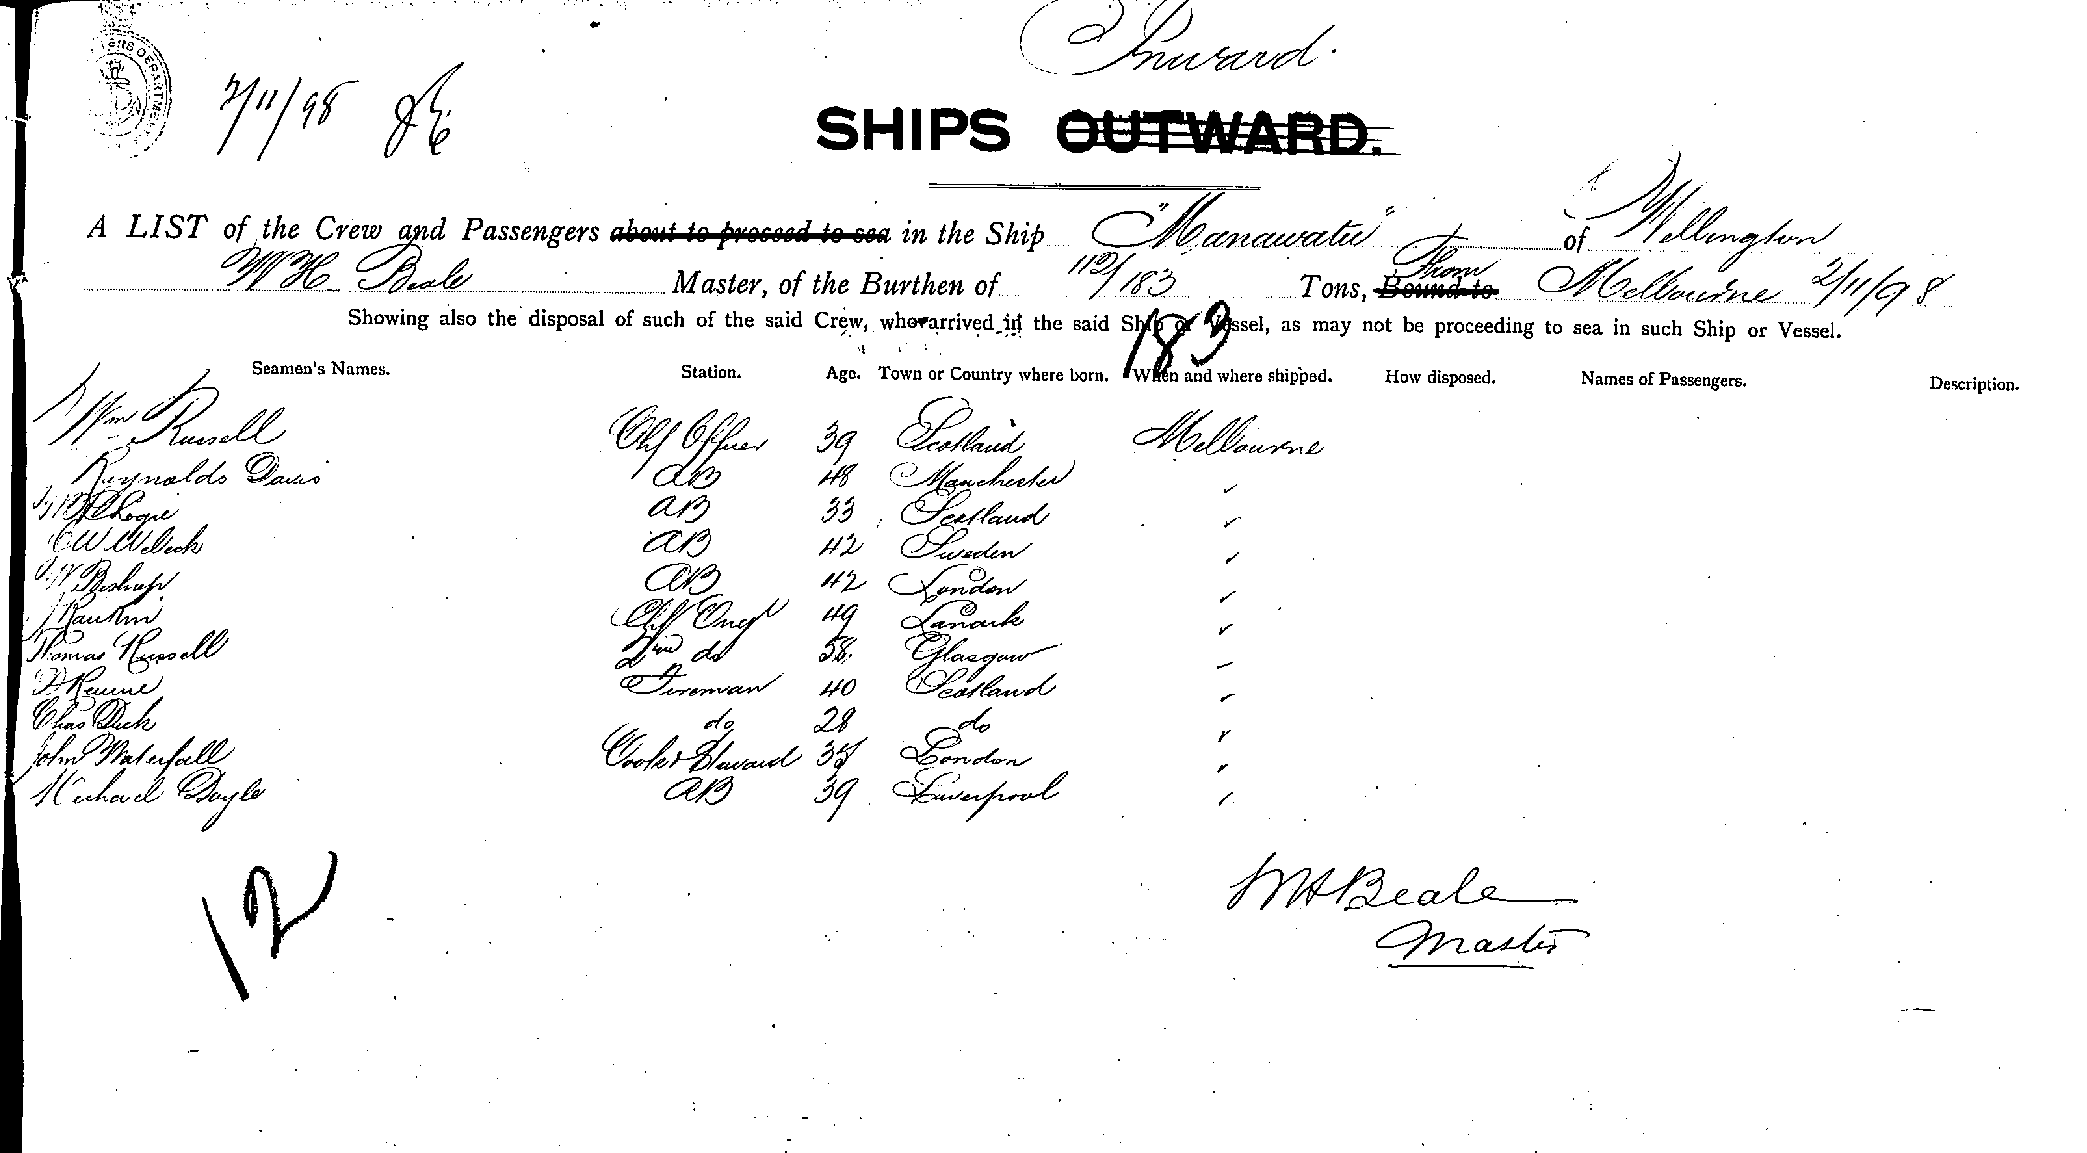 Inward.
2/11/98
SHIPS OUTWARD.
A LIST of the Crew and Passengers about to proceed to sea in the Ship "Manawatu" of Wellington
W H Beale Master, of the Burthen of 112/183 Tons, Bound to From Melbourne 2/11/98
Showing also the disposal of such of the said Crew, who arrived in the said Ship or Vessel, as may not be proceeding to sea in such Ship or Vessel.
183
Seamen's Names. Station. Age. Town or Country where born. When and where shipped. How disposed. Names of Passengers. Description.
Wm Russell Chf Officer 39 Scotland Melbourne
Reynolds Davis AB 48 Manchester "
AB 33 Scotland "
C W AB 42 Sweden "
W Bishop AB 42 London "
J Rankin Chf Engr 49 Lanark "
Thomas Russell 2nd do 58 Glasgow "
D Rennie Fireman 40 Scotland "
Chas Dick do 28 do "
John Waterfall Cook & Steward London "
Michael Doyle AB 39 Liverpool "
12
W H Beale
Master